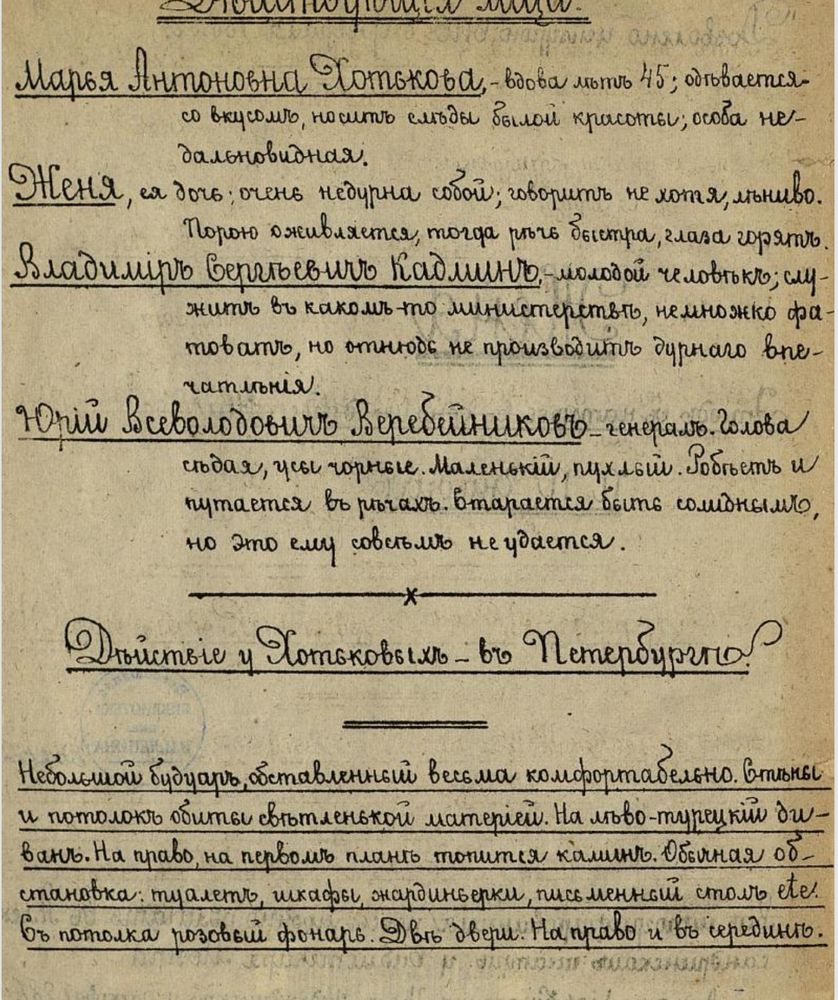 Дѣйствующія лица.
Марья Антоновна Хотькова,-вдова лѣтъ 45; одѣвается
со вкусомъ, носитъ слѣды былой красоты; особа не-
дальновидная.
Женя, ея дочь; очень недурна собой; говоритъ не хотя, лѣниво.
Порою оживляется, тогда рѣчь быстра, глаза горятъ.
Владиміръ Сергѣевичъ Кадминъ,-молодой человѣкъ; слу-
житъ въ какомъ-то министерствѣ, немножко фа-
товатъ, но отнюдь не производитъ дурнаго впе-
чатлѣнія.
Юрій Всеволодовичъ Веребейниковъ-генералъ. Голова
сѣдая, усы чорные. Маленькій, пухлый. Робѣетъ и
путается въ рѣчахъ. Старается быть солиднымъ,
но это ему совсѣмъ не удается.
Дѣйствіе у Хотьковыхъ-въ Петербургѣ.
Небольшой будуаръ, обставленный весьма комфортабельно. Стѣны
и потолокъ обиты свѣтленькой матеріей. На лѣво-турецкій ди-
ванъ. На право, на первомъ планѣ топится каминъ. Обычная об-
становка: туалетъ, шкафы, жардиньерки, письменный столъ etc.
Съ потолка розовый фонарь. Двѣ двери. На право и въ серединѣ.